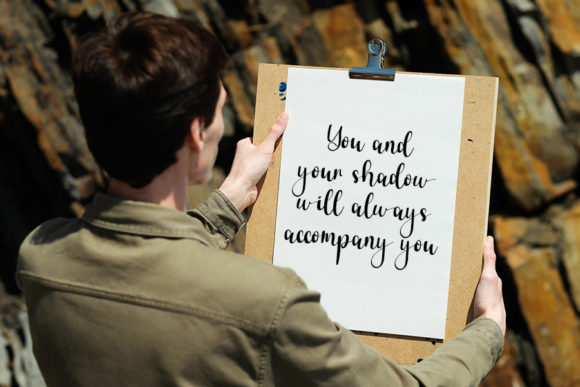 You and
your shadow
will always
accompany you